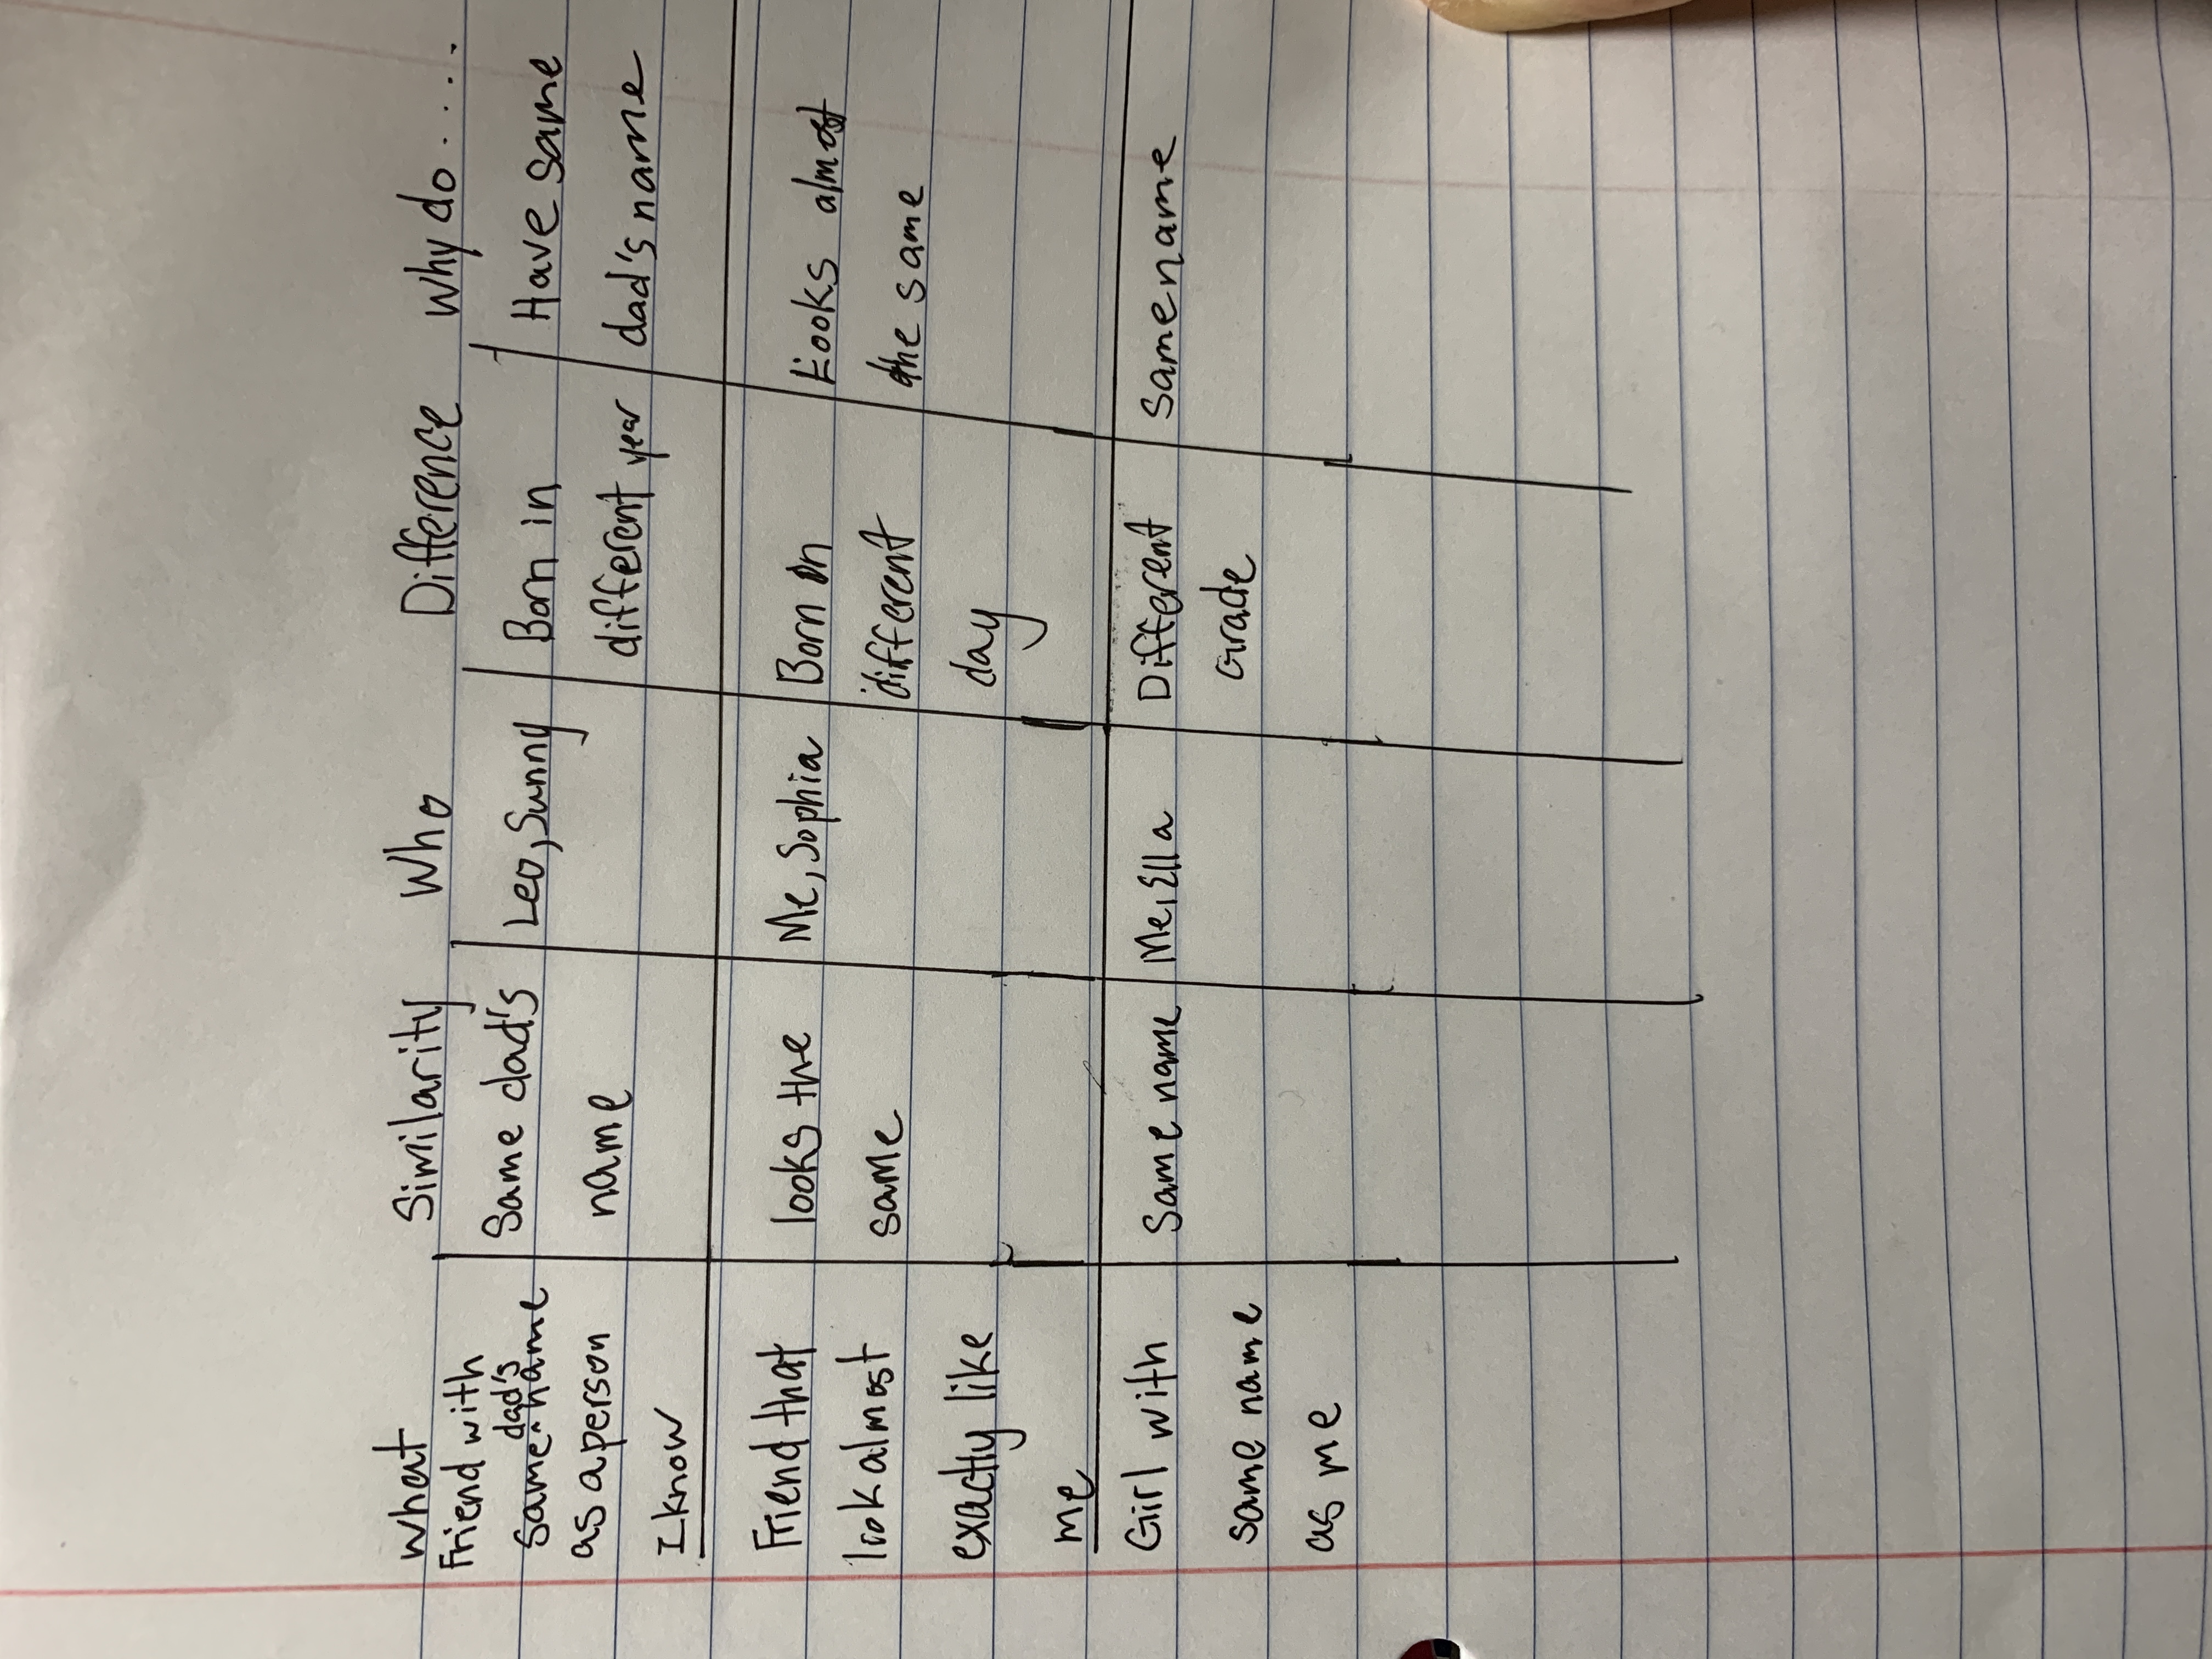 what Similarity Who Difference why do .....
Friend with
same dad's name
as a person
I know
Same dad's
name
Leo, Sunny
Born in
different year
Have same
dad's name
Friend that
look almost
exactly like
me
looks the
same
Me, Sophia
Born on
different
day
Looks almost
the same
Girl with
same name
as me
Same name
Me, Ella
Different
Grade
Same name